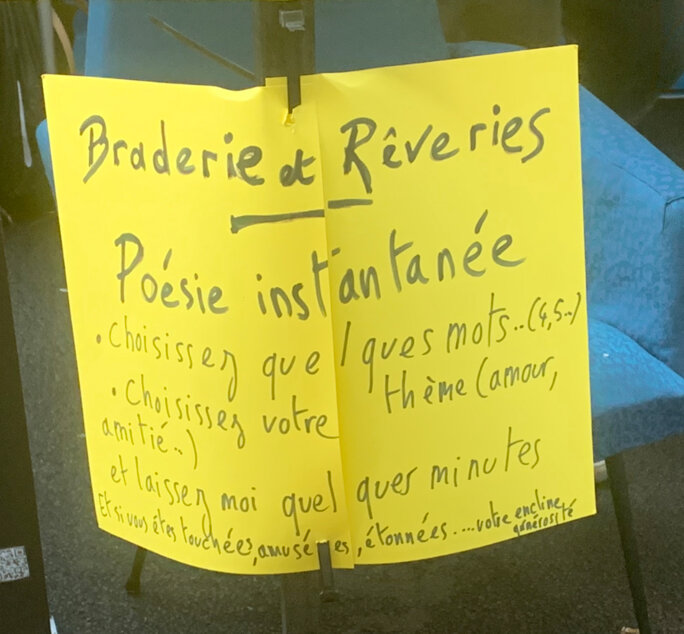 Braderie et Rêveries
Poésie instantanée
• Choisissez quelques mots..(4,5..)
• Choisissez votre thème (amour,
amitié..)
et laissez moi quelques minutes
Et si vous êtes touchées, amusées, étonnées....votre encline
générosité